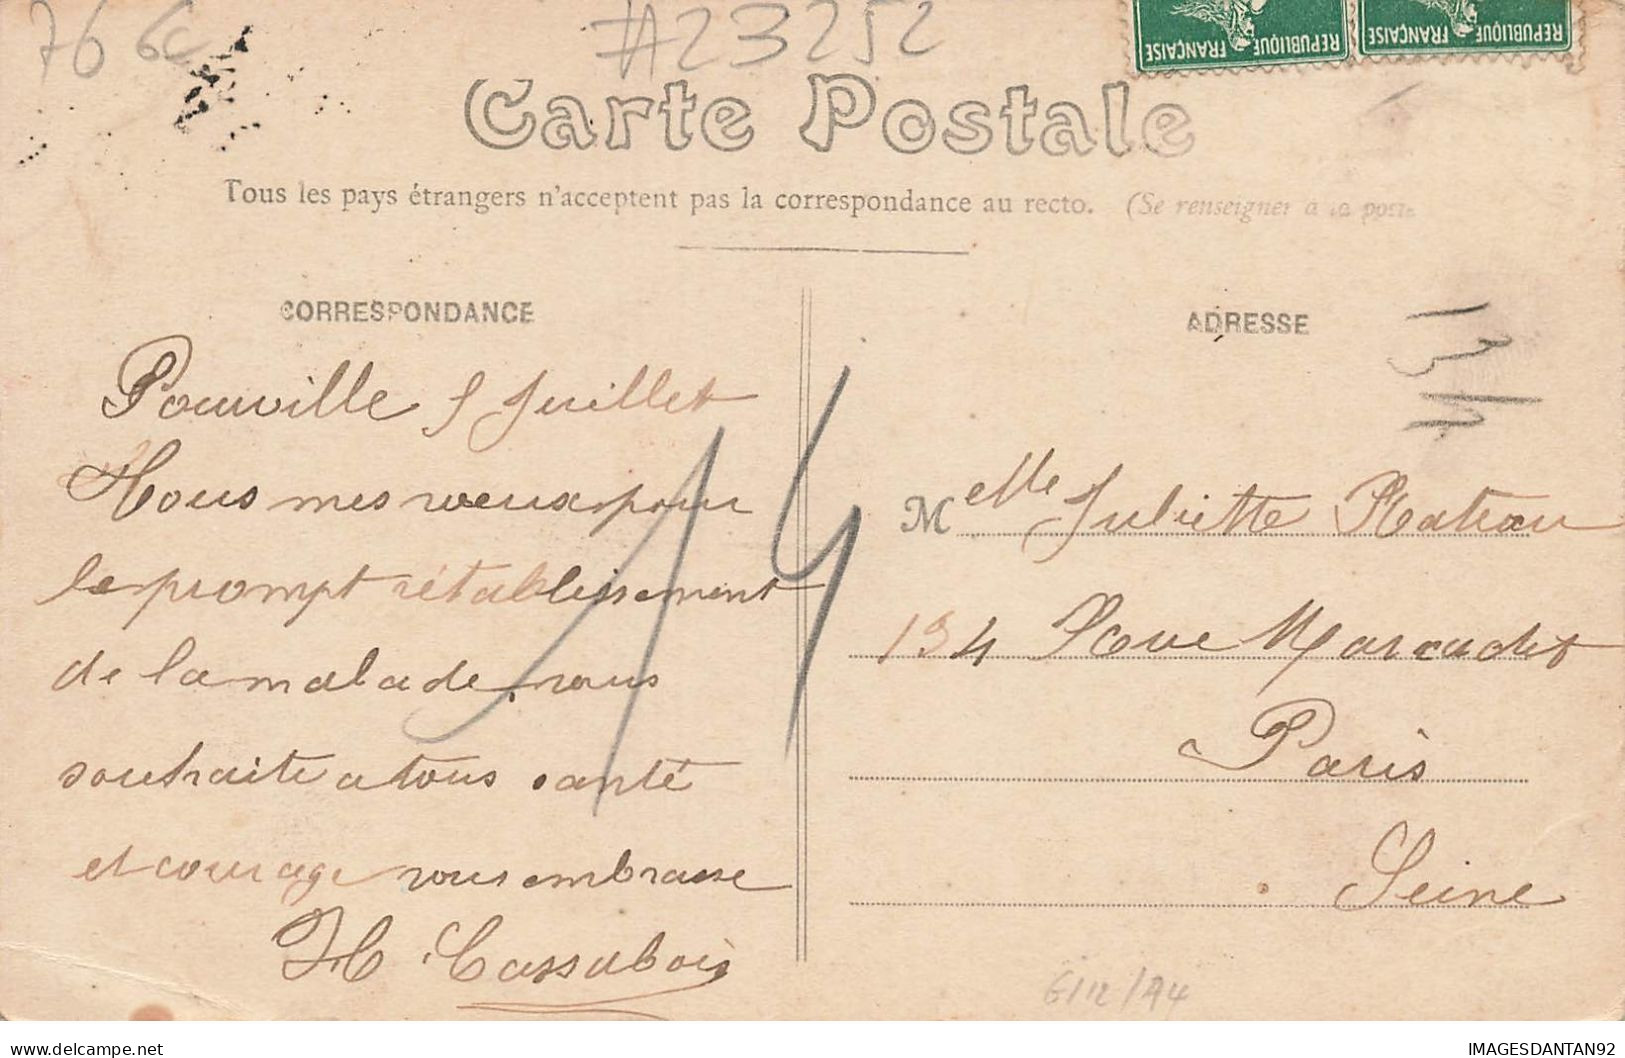 76 6c
#23252
REPUBLIQUE FRANÇAISE
REPUBLIQUE FRANÇAISE
Carte Postale
Tous les pays étrangers n'acceptent pas la correspondance au recto. (Se renseigner à la poste
CORRESPONDANCE
Pourville 5 Juillet
Tous mes voeux pour
le prompt rétablissement
de la malade, vous
souhaite a tous santé
et courage vous embrasse
H. Cassabois
14
ADRESSE
Melle Juliette Plateau
134 Rue Marcadet
Paris
Seine
6/12/A4
IMAGESDANTAN92
delcampe.net